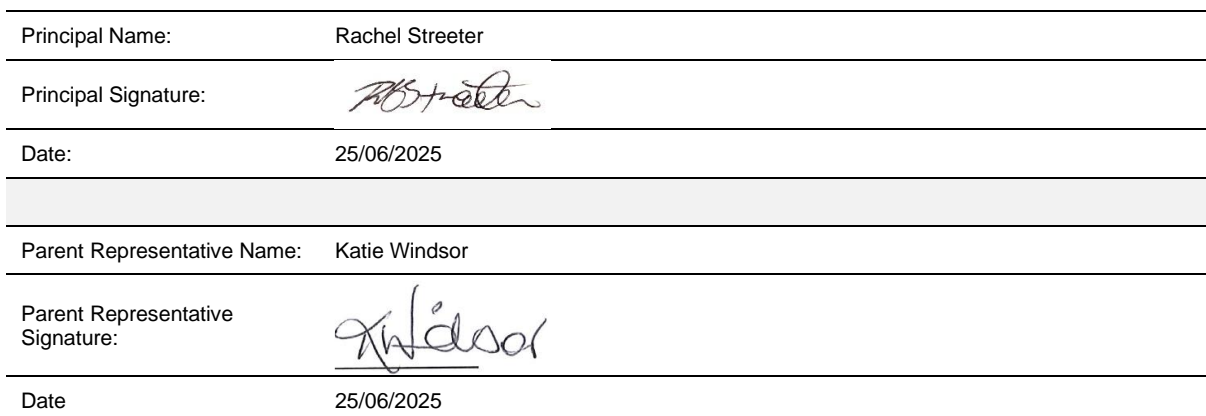 Principal Name: Rachel Streeter
Principal Signature: RBStreeter
Date: 25/06/2025
Parent Representative Name: Katie Windsor
Parent Representative
Signature: KWindsor
Date 25/06/2025